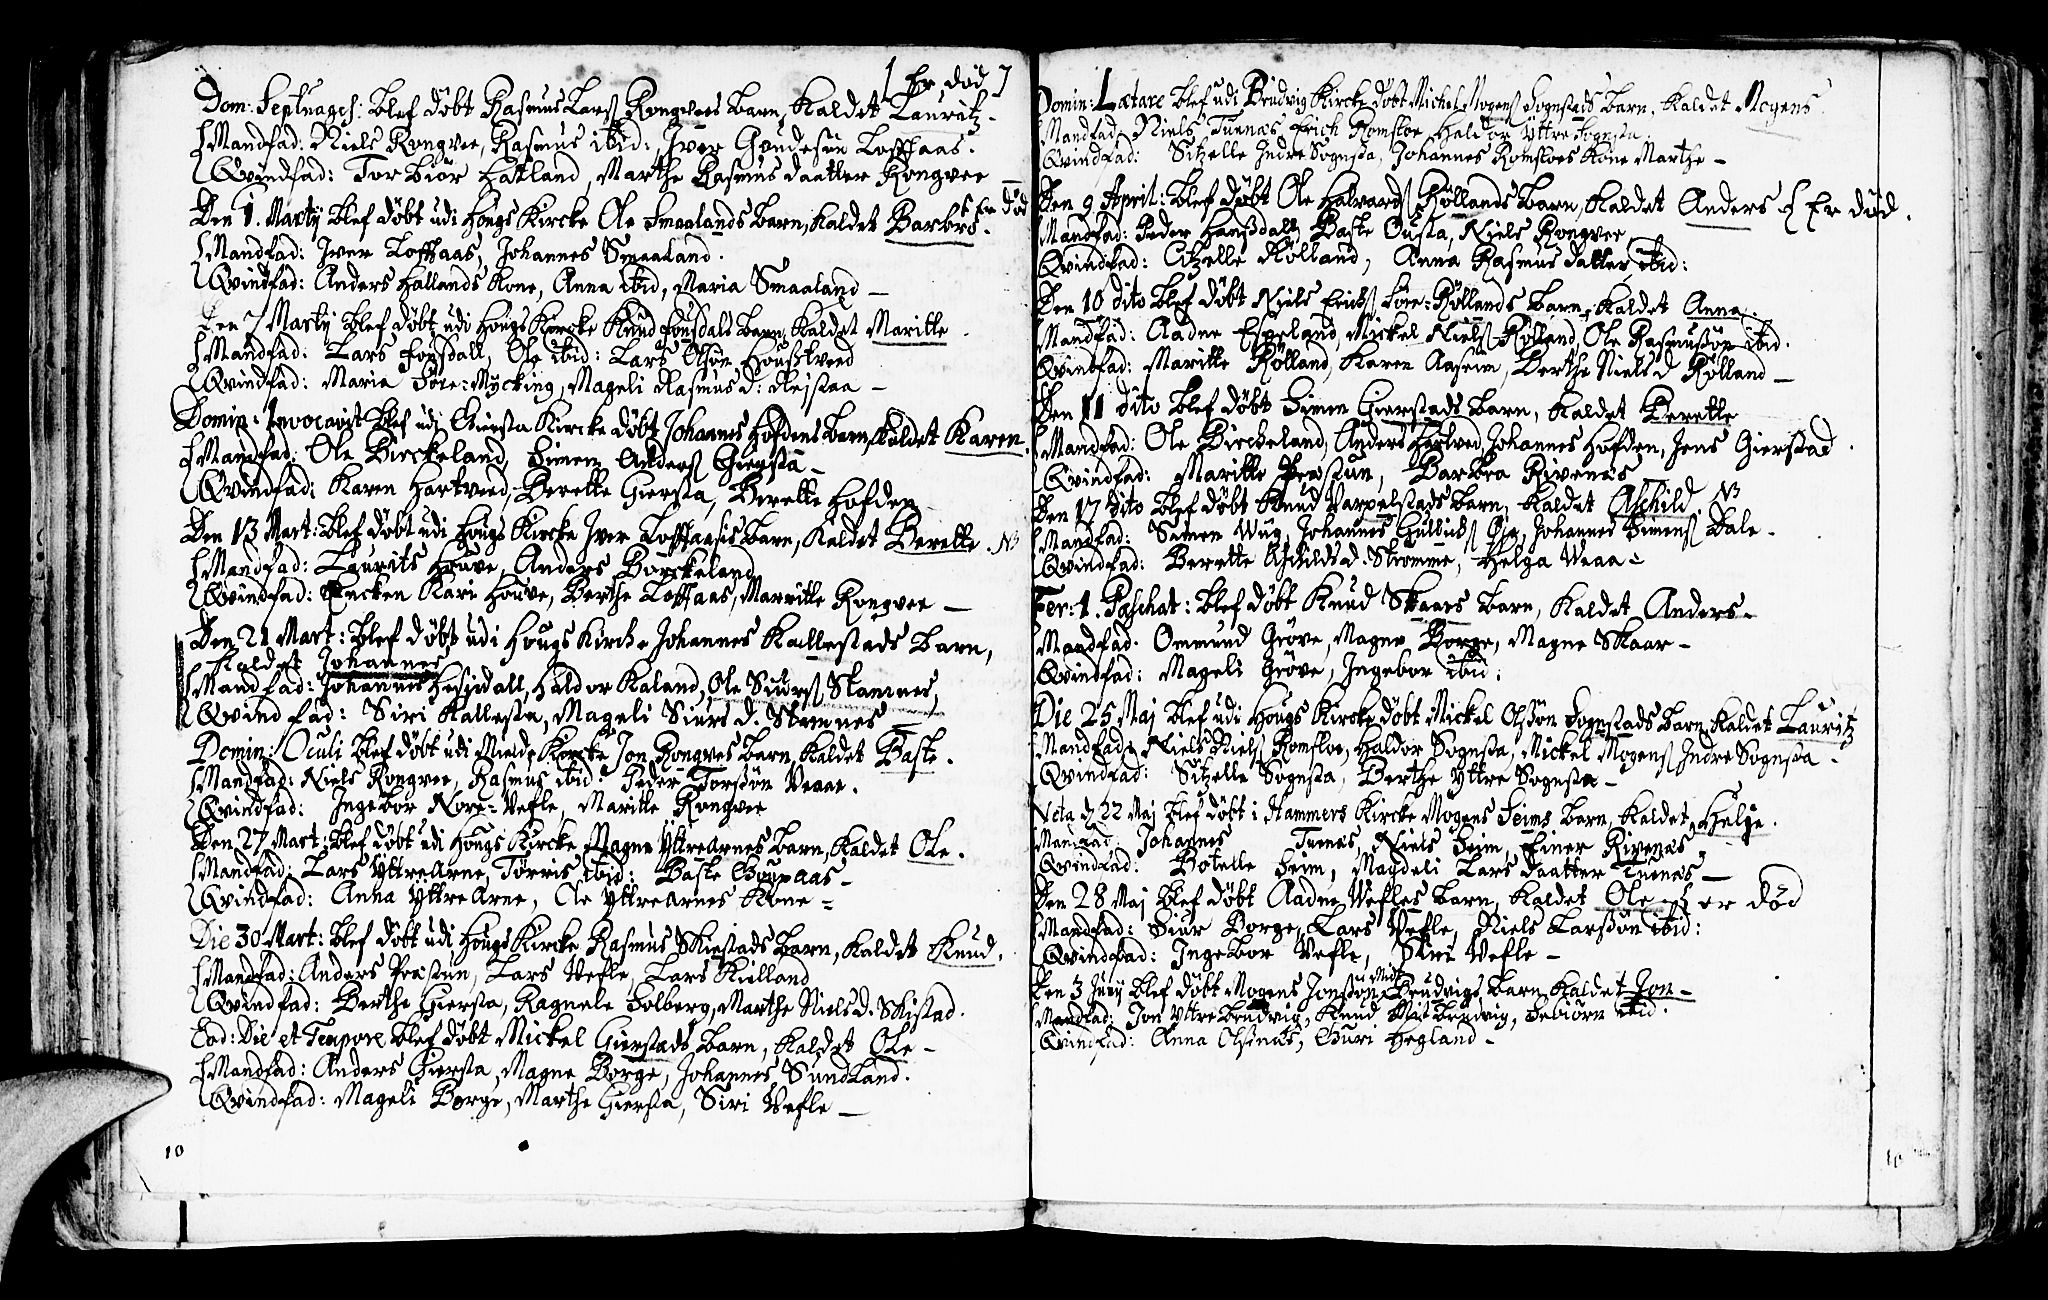 Er død
Dom: Septuages: blef døbt Rasmus Lars Rongvees barn, kaldet Lauritz.
Mandfad: Niels Rongvee, Rasmus ibid: Iver Loffaas.
Qvindfad: Torbiør Hatland, Marthe Rasmus daatter Rongvee
Den 1. Martÿ blef døbt udi Hougs Kircke Ole Smaalands barn, kaldet Barbro. Er død
Mandfad: Iver Loffaas, Johannes Smaaland.
Qvindfad: Anders Hallands Kone, Anna ibid, Maria Smaaland
Den 7 Martÿ blef døbt udi Hougs Kircke Knud barn, kaldet Maritte.
Mandfad: Lars, Ole ibid: Lars Olsøn
Qvindfad: Maria Søre-Mycking, Mageli Rasmus d:
Domin: Invocavit blef udi Giersta Kircke døbt Johannes Hofdens barn, kaldet Karen.
Mandfad: Ole Birckeland, Simen Anders Giersta
Qvindfad: Karen Hartveed, Berette Giersta, Berette Hofden
Den 13 Mart: blef døbt udi Hougs Kircke Iver Loffaasis barn, kaldet Berette. NB
Mandfad: Laurits Houve, Anders Borckeland
Qvindfad: Encken Kari Houve, Berthe Loffaas, Marritte Rongvee
Den 21 Mart: blef døbt udi Hougs Kircke Johannes Kallestads barn,
kaldet Johannes
Mandfad: Johannes, Haldor Kaland, Ole Siurs Stamnes,
Qvindfad: Siri Kallesta, Mageli Siurs d. Stamnes
Domin: Oculi blef døbt udi Mielde Kircke Jon Rongves barn, kaldet Baste.
Mandfad: Niels Rongvee, Rasmus ibid: Peder Torsøn Veaae.
Qvindfad: Ingebor Nore-Vefle, Maritte Rongvee
Den 27 Mart: blef døbt udi Hougs Kircke Magne Yttrearnes barn, kaldet Ole.
Mandfad: Lars YttreArne, Tørris ibid: Baste
Qvindfad: Anna YttreArne, Ole YttreArnes Kone
Die 30 Mart: blef døbt udi Hougs Kircke Rasmus Skiestads barn, kaldet Knud.
Mandfad: Anders Præstun, Lars Vefle, Lars Kielland
Qvindfad: Berthe Giersta, Ragnele Solberg, Marthe Niels d. Skistad.
Ead: Die et Tempore blef døbt Mickel Gierstads barn, kaldet Ole
Mandfad: Anders Giersta, Magne Borge, Johannes Sundland.
Qvindfad: Mageli Borge, Marthe Giersta, Siri Vefle
10
Domin: Lætare blef udi Brudvig Kircke døbt Michel Mogens Sognstads barn, kaldet Mogens.
Mandfad: Niels Tuenæs, Erich Romsloe, Haldor Yttre Sognsta.
Qvindfad: Sitzelle Indre Sognsta, Johannes Romsloes Kone Marthe
Den 9 April: blef døbt Ole Halvards Røllands barn, kaldet Anders Er død.
Mandfad: Peder, Baste Ousta, Niels Rongvee
Qvindfad: Citzelle Rølland, Anna Rasmus datter ibid:
Den 10 dito blef døbt Niels Erichs Søre-Røllands barn, kaldet Anna.
Mandfad: Aadne Espeland, Mickel Niels Rølland, Ole Rasmussøn ibid.
Qvindfad: Maritte Rølland, Karen Aaseim, Berthe Niels d Rølland
Den 11 dito blef døbt Simen Gierstads barn, kaldet Berette
Mandfad: Ole Birckeland, Anders Hartved, Johannes Hofden, Jens Gierstad.
Qvindfad: Maritte Præstun, Barbra Rivenæs
Den 17 dito blef døbt Knud Varpelstads barn, kaldet Aschild. NB
Mandfad: Samen, Johannes, Johannes Simens Dale.
Qvindfad: Berette Aschilds d. Stromme, Helga Veaa
Fer: 1. Paschat: blef døbt Knud Skaars barn, kaldet Anders
Mandfad: Ommund Grøve, Magne Borge, Magne Skaar
Qvindfad: Mageli Grøve, Ingebor ibid:
Die 25 Maj blef udi Hougs Kircke døbt Mickel Olssøn Sognstads barn, kaldet Lauritz
Mandfad: Niels Niels Romsloe, Haldor Sognsta, Mickel Mogens Indre Sognsta.
Qvindfad: Sitzelle Sognsta, Berthe Yttre Sognsta
Nota d. 22 Maj blef døbt i Hammers Kircke Mogens Seims barn, kaldet Helje.
Mandfad: Johannes Tuenæs, Niels Seim, Einer Rivenæs
Qvindfad: Botelle Seim, Magdeli Lars daatter Tuenæs
Den 28 Maj blef døbt Aadne Vefles barn, kaldet Ole er død
Mandfad: Siur Borge, Lars Vefle, Niels Larssøn ibid:
Qvindfad: Ingebor Vefle, Siri Vefle
Den 3 Junÿ blef døbt Mogens Jonssøn Mid Brudvigs barn, kaldet Jon
Mandfad: Jon Yttre Brudvig, Knud Mit Brudvig, Sebiørn ibid.
Qvindfad: Anna Olsnæs, Guri Hegland
10